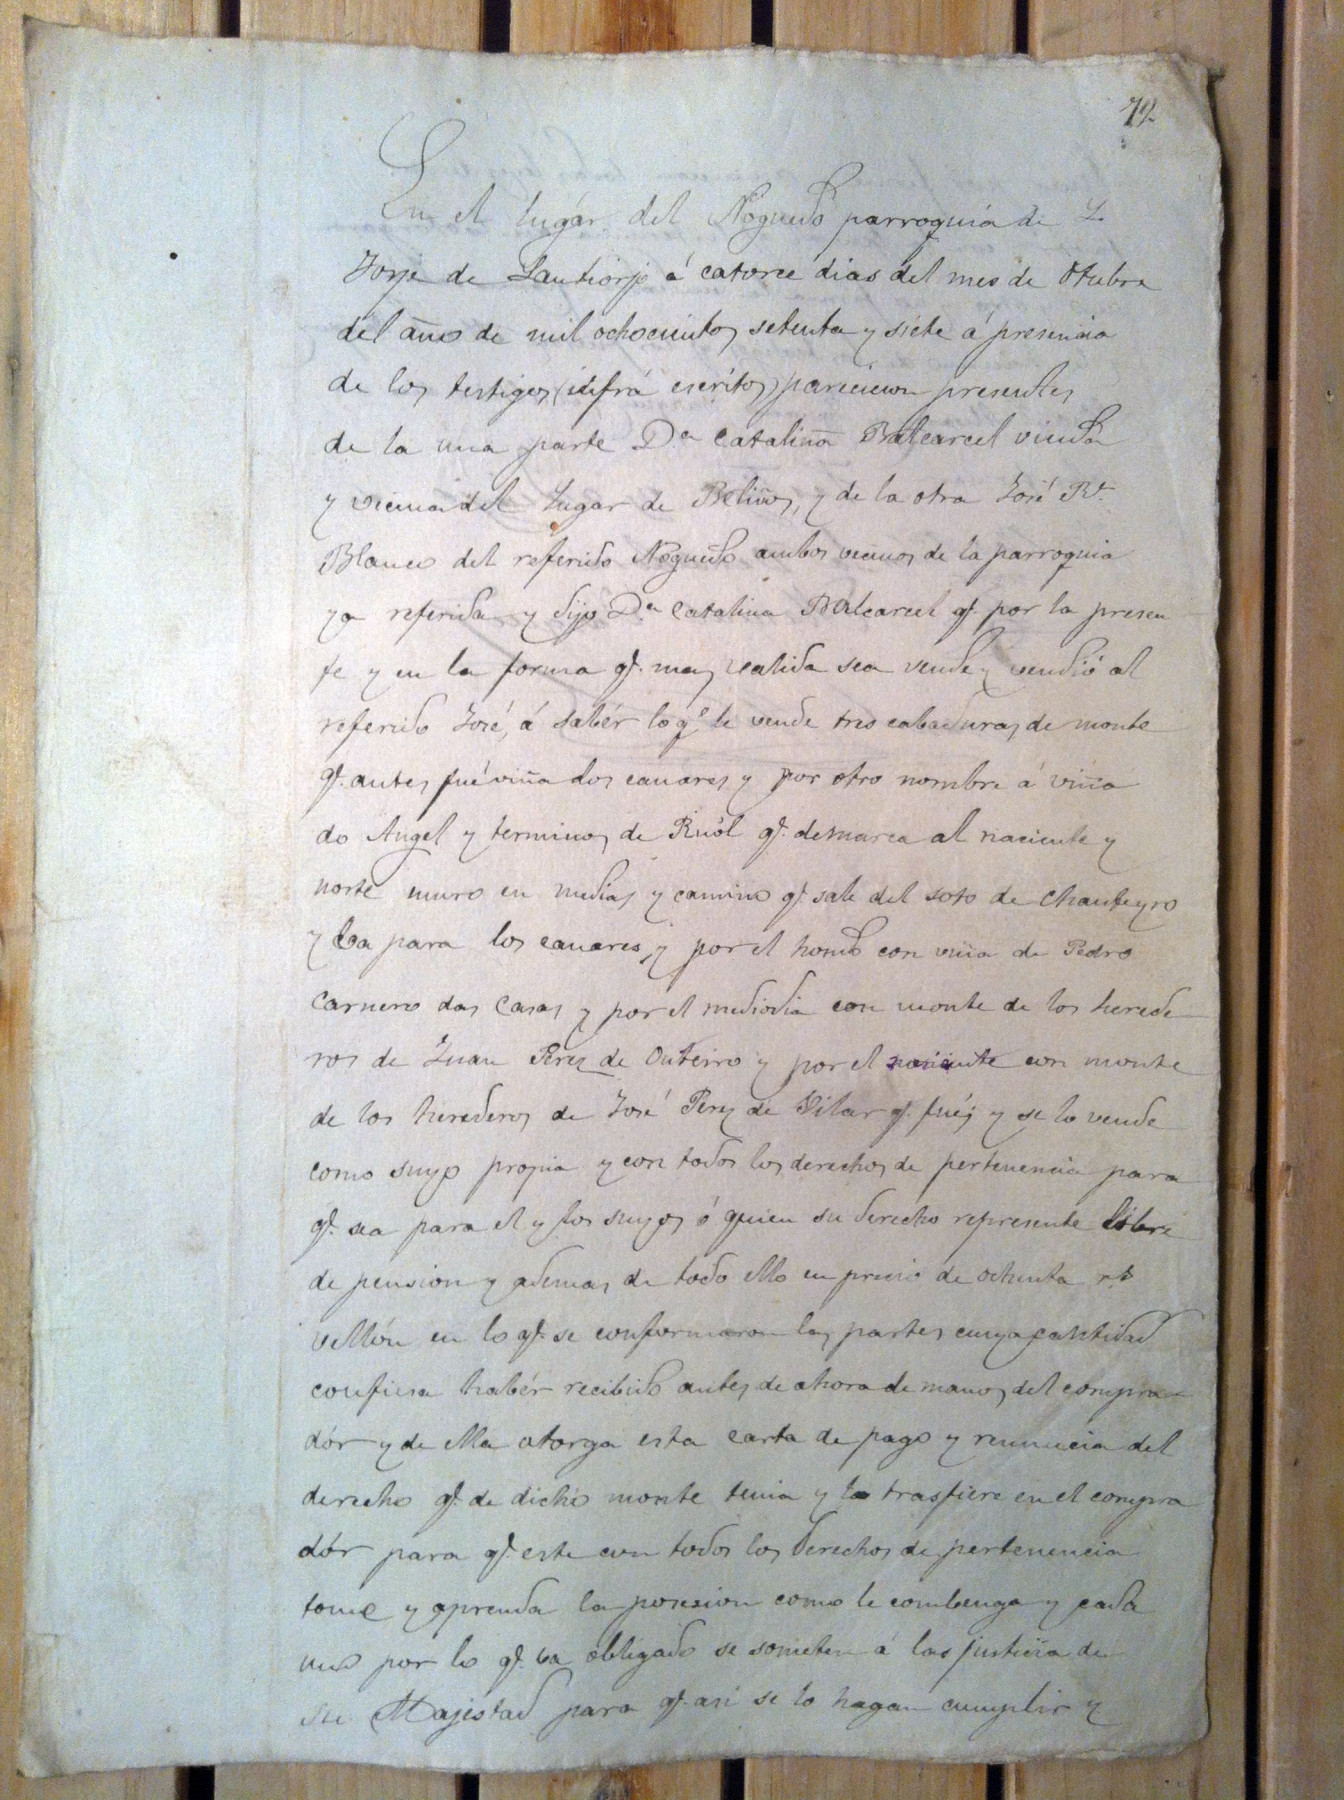 72
En el lugar del Noguedo parroquia de S.
Jorje de Santiorjo á catorce dias del mes de Otubre
del año de mil ochocientos setenta y siete á presencia
de los testigos (infrá escritos) parecieron presentes
de la una parte D.ª Catalina Balcarcel viuda
y vecina del lugar de Beliños, y de la otra José R.
Blanco del referido Noguedo ambos vecinos de la parroquia
ya referida y dijo D.ª Catalina Balcarcel q.e por la presen
te y en la forma q.e mas valida sea vende y vendió al
referido José, á sabér lo q.e le vende tres cabaduras de monte
q.e antes fué viña dos canares y por otro nombre á viña
do Angel y terminos de Ruól q.e demarca al naciente y
norte muro en medias y camino q.e sale del soto de Chanteyro
y ba para los canares, y por el hondo con viña de Pedro
Carnero das Casas y por el mediodia con monte de los herede
ros de Juan Perez de Outeiro y por el naciente con monte
de los herederos de José Perez de Vilar q.e fué; y se lo vende
como suyo propia y con todos los derechos de pertenencia para
q.e sea para el y los suyos ó quien su derecho represente libre
de pension y ademas de todo ello en precio de ochenta r.s
vellón en lo q.e se conformaron las partes cuya cantidad
confiesa habér recibido antes de ahora de manos del compra
dór y de ella otorga esta carta de pago y renuncia del
derecho q.e de dicho monte tenia y lo trasfiere en el compra
dór para q.e este con todos los derechos de pertenencia
tome y aprenda la posesion como le combenga y cada
uno por lo q.e va obligado se someten á las justicia de
su Majestad para q.e asi se lo hagan cumplir y